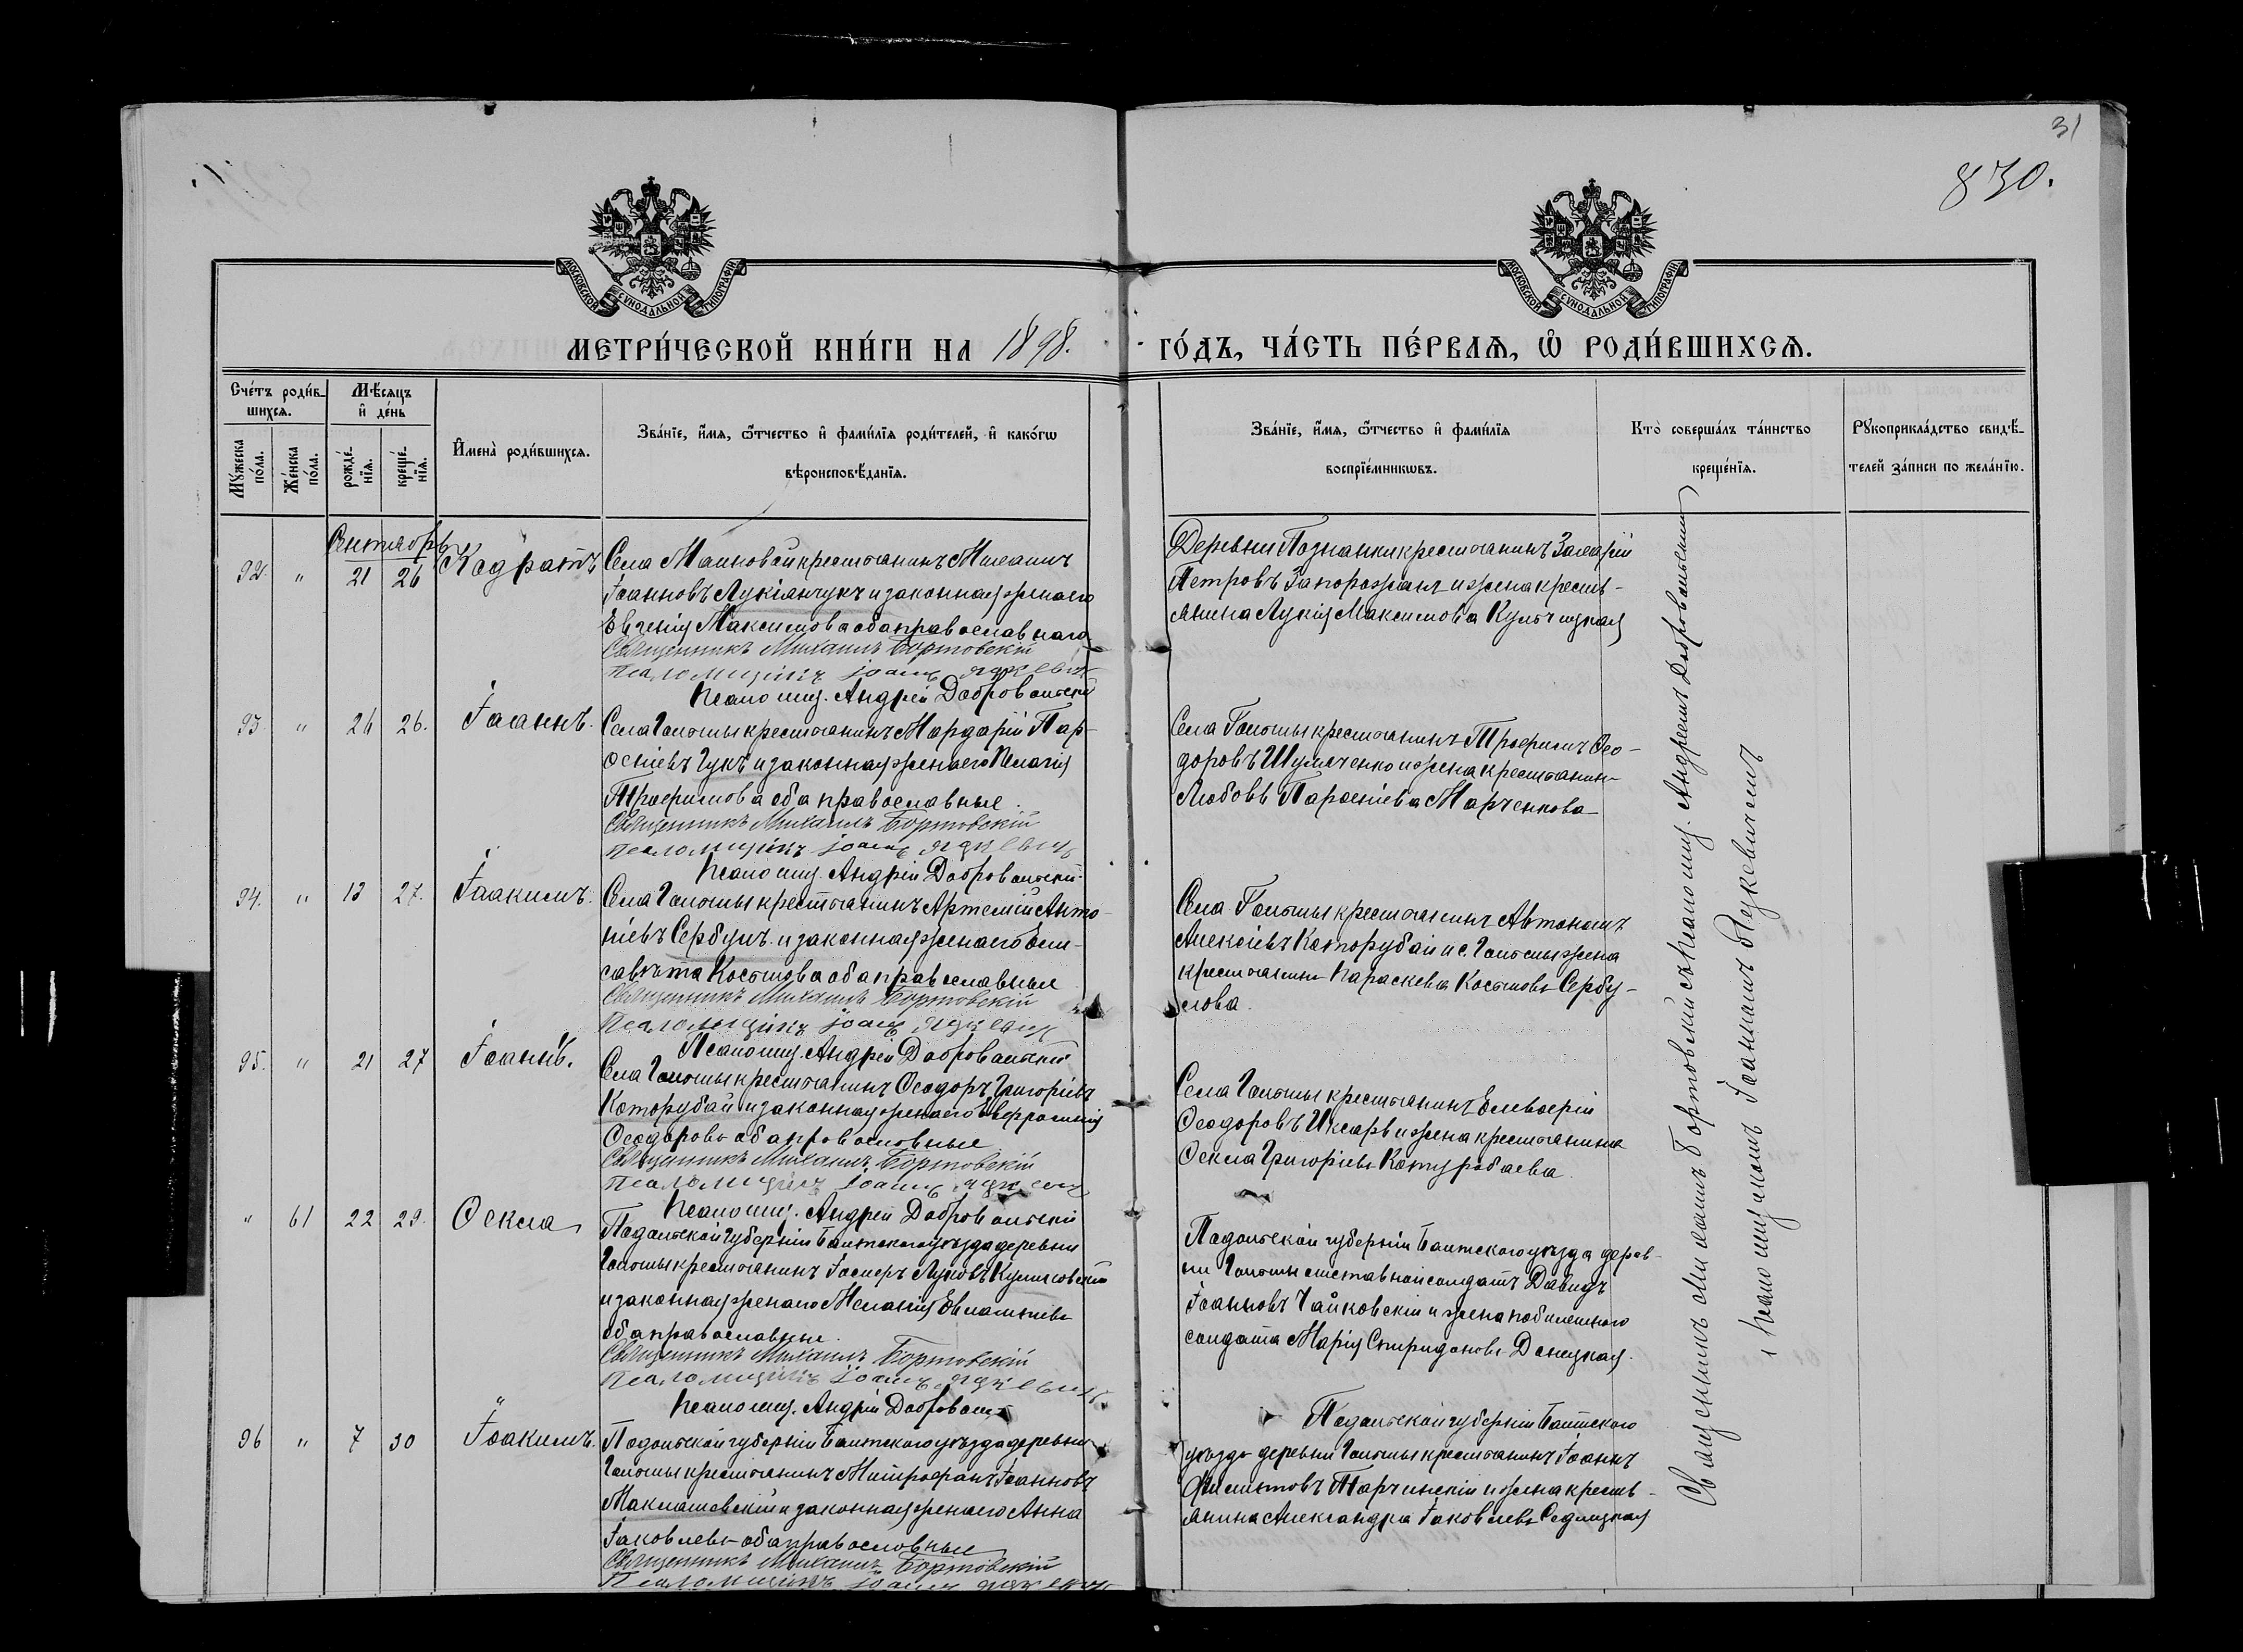 31
830.
МОСКОВСКОЙ СѴНОДАЛЬНОЙ ТИПОГРАФІИ
МОСКОВСКОЙ СѴНОДАЛЬНОЙ ТИПОГРАФІИ
МЕТРИ́ЧЕСКОЙ КНИ́ГИ НА 1898.
ГО́ДЪ, ЧА́СТЬ ПЕ́РВАѦ, Ѡ҆ РОДИ́ВШИХСѦ.
Сче́тъ роди́в-
шихсѧ.
Мꙋ́жеска по́ла.
Же́нска по́ла.
Мѣ́сѧцъ
и҆ де́нь
рожде́-
нїѧ.
креще́-
нїѧ.
И҆мена̀ роди́вшихсѧ.
Зва́нїе, и҆́мѧ, ѻ҆́тчество и҆ фами́лїѧ роди́телей, и҆ како́гѡ
вѣроисповѣ́данїѧ.
Зва́нїе, и҆́мѧ, ѻ҆́тчество и҆ фами́лїѧ
воспрїе́мникѡвъ.
Кто̀ соверша́лъ та́инство
креще́нїѧ.
Рꙋкоприкла́дство свидѣ́-
телей за́писи по жела́нїю.
Сентябрь
92. " 21 26 Кодратъ
Села Маиновой крестьянинъ Михаилъ
Іоанновъ Лукіянчукъ и законная жена его
Евгенія Максимова оба православнаго
Священникъ Михаилъ Бортовскій
Псаломщикъ Іоаннъ Яцкевич
Псаломщ. Андрей Добровольскій
Деревни Познанки крестьянинъ Захарій
Петровъ Запорожанъ и жена крестъ-
янина Лукія Максимова Кульчицкая
93. " 26 26. Іоаннъ.
Села Гольмы крестьянинъ Мардарій Пар-
ѳеніевъ Гукъ и законная жена его Пелагія
Трофимова оба православные.
Священникъ Михаилъ Бортовскій
Псаломщикъ Іоаннъ Яцкевич
Псаломщ. Андрей Добровольскій
Села Гольмы крестьянинъ Трофимъ Ѳео-
доровъ Шумченко и жена крестьянин
Любовь Парѳеніева Марченкова
94. " 13 27. Іоакимъ.
Села Гольмы крестьянинъ Артемій Анто-
ніевъ Сербулъ и законная жена его Ели-
савета Косьмова оба православные
Священникъ Михаилъ Бортовскій
Псаломщикъ Іоаннъ Яцкевич
Псаломщ. Андрей Добровольскій
Села Гольмы крестьянинъ Автономъ
Алексіевъ Которубай и с. Гольмы жена
крестьянина Параскева Косьмова Сербу-
лова.
95. " 21 27 Іоаннъ.
Села Гольмы крестьянинъ Ѳеодоръ Григоріевъ
Которубай и законная жена его Евфросинія
Ѳеодорова оба православные
Священникъ Михаилъ Бортовскій
Псаломщикъ Іоаннъ Яцкевич
Псаломщ. Андрей Добровольскій
Села Гольмы крестьянинъ Елевѳерій
Ѳеодоровъ и жена крестьянина
Ѳекла Григоріева Которобаева
" 61 22 29. Ѳекла
Подольской губерніи Балтскаго уѣзда деревни
Гольмы крестьянинъ Іосифъ Луковъ
и законная жена его Меланія Евлампіева
оба православные.
Священникъ Михаилъ Бортовскій
Псаломщикъ Іоаннъ Яцкевич
Псаломщ. Андрей Добровольск
Подольской губерніи Балтскаго уѣзда дерев-
ни Гольмы отставной солдатъ Давидъ
Іоанновъ Чайковскій и жена
солдата Марія Спиридонова Донецкая.
96 " 7 30 Іоакимъ.
Подольской губерніи Балтскаго уѣзда деревни
Гольмы крестьянинъ Митрофанъ Іоанновъ
Маклашевскій и законная жена его Анна
Іаковлева оба православные
Священникъ Михаилъ Бортовскій
Псаломщикъ Іоаннъ Яцкевич
Подольской губерніи Балтскаго
уѣзда деревни Гольмы крестьянинъ Іоаннъ
Филиповъ Тарчинскій и жена крестъ-
янина Александра Іаковлева Седлицкая
Священникъ Михаилъ Бортовскій съ псаломщ. Андреемъ Добровольскимъ
и псаломщикомъ Іоанномъ Яцкевичемъ